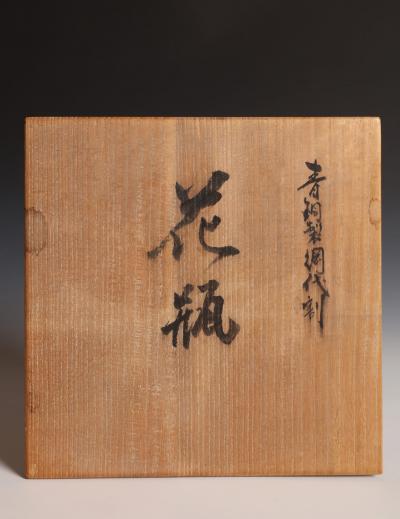 青銅製網代割
花瓶